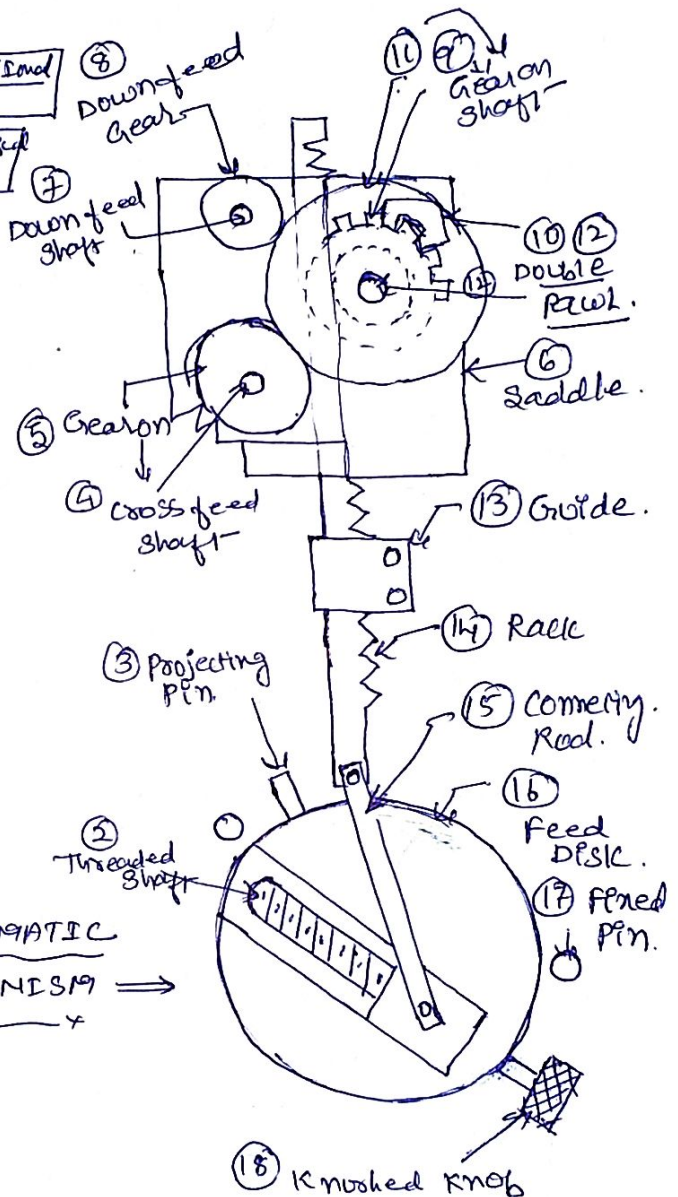 ⑧
Downfeed
Gear
⑪ ⑨
Gear on
Shaft
⑦
Down feed
Shaft
⑩ ⑫
Double
Pawl.
⑫
⑥
Saddle.
⑤ Gear on
④ Cross feed
Shaft
⑬ Guide.
⑭ Rack
③ Projecting
Pin.
⑮
Rod.
⑯
Feed
Disk.
②
Threaded
Shaft
⑰ Fixed
Pin.
MATIC
NISM ⇒
⑱ Knushed Knob